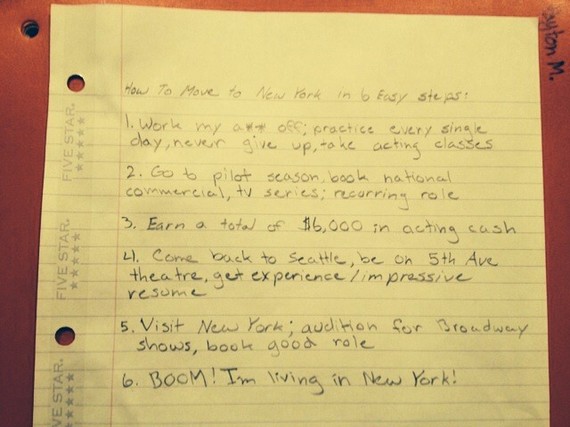 yton M.
How To Move to New York in 6 Easy steps:
1. Work my a** off; practice every single
day, never give up, take acting classes
2. Go to pilot season, book national
commercial, tv series; recurring role
3. Earn a total of $6,000 in acting cash
4. Come back to Seattle, be on 5th Ave
theatre, get experience/impressive
resume
5. Visit New York; audition for Broadway
shows, book good role
6. BOOM! I'm living in New York!
FIVE STAR.
FIVE STAR.
VE STAR.